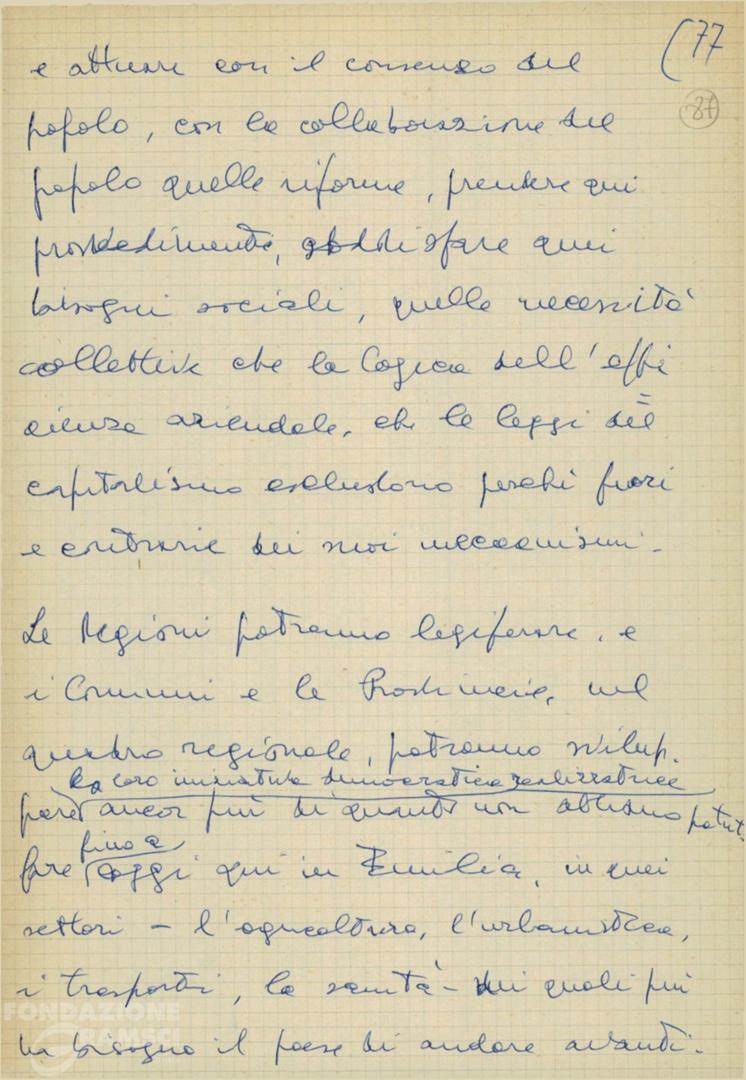 (77
37
e attuare con il consenso del
popolo, con la collaborazione del
popolo quelle riforme, prendere quei
provvedimenti, soddisfare quei
bisogni sociali, quelle necessità
collettive che la logica dell'effi
cienza aziendale, che le leggi del
capitalismo escludono perché fuori
e contrarie dei suoi meccanismi.
Le Regioni potranno legiferare, e
i Comuni e le Provincie, nel
quadro regionale, potranno svilup.
la loro iniziativa democratica realizzatrice
pare ancor più di quanto non abbiamo potut.
fino a
fare oggi qui in Emilia, in quei
settori - l'agricoltura, l'urbanistica,
i trasporti, la sanità - dei quali più
ha bisogno il paese di andare avanti.
FONDAZIONE
GRAMSCI